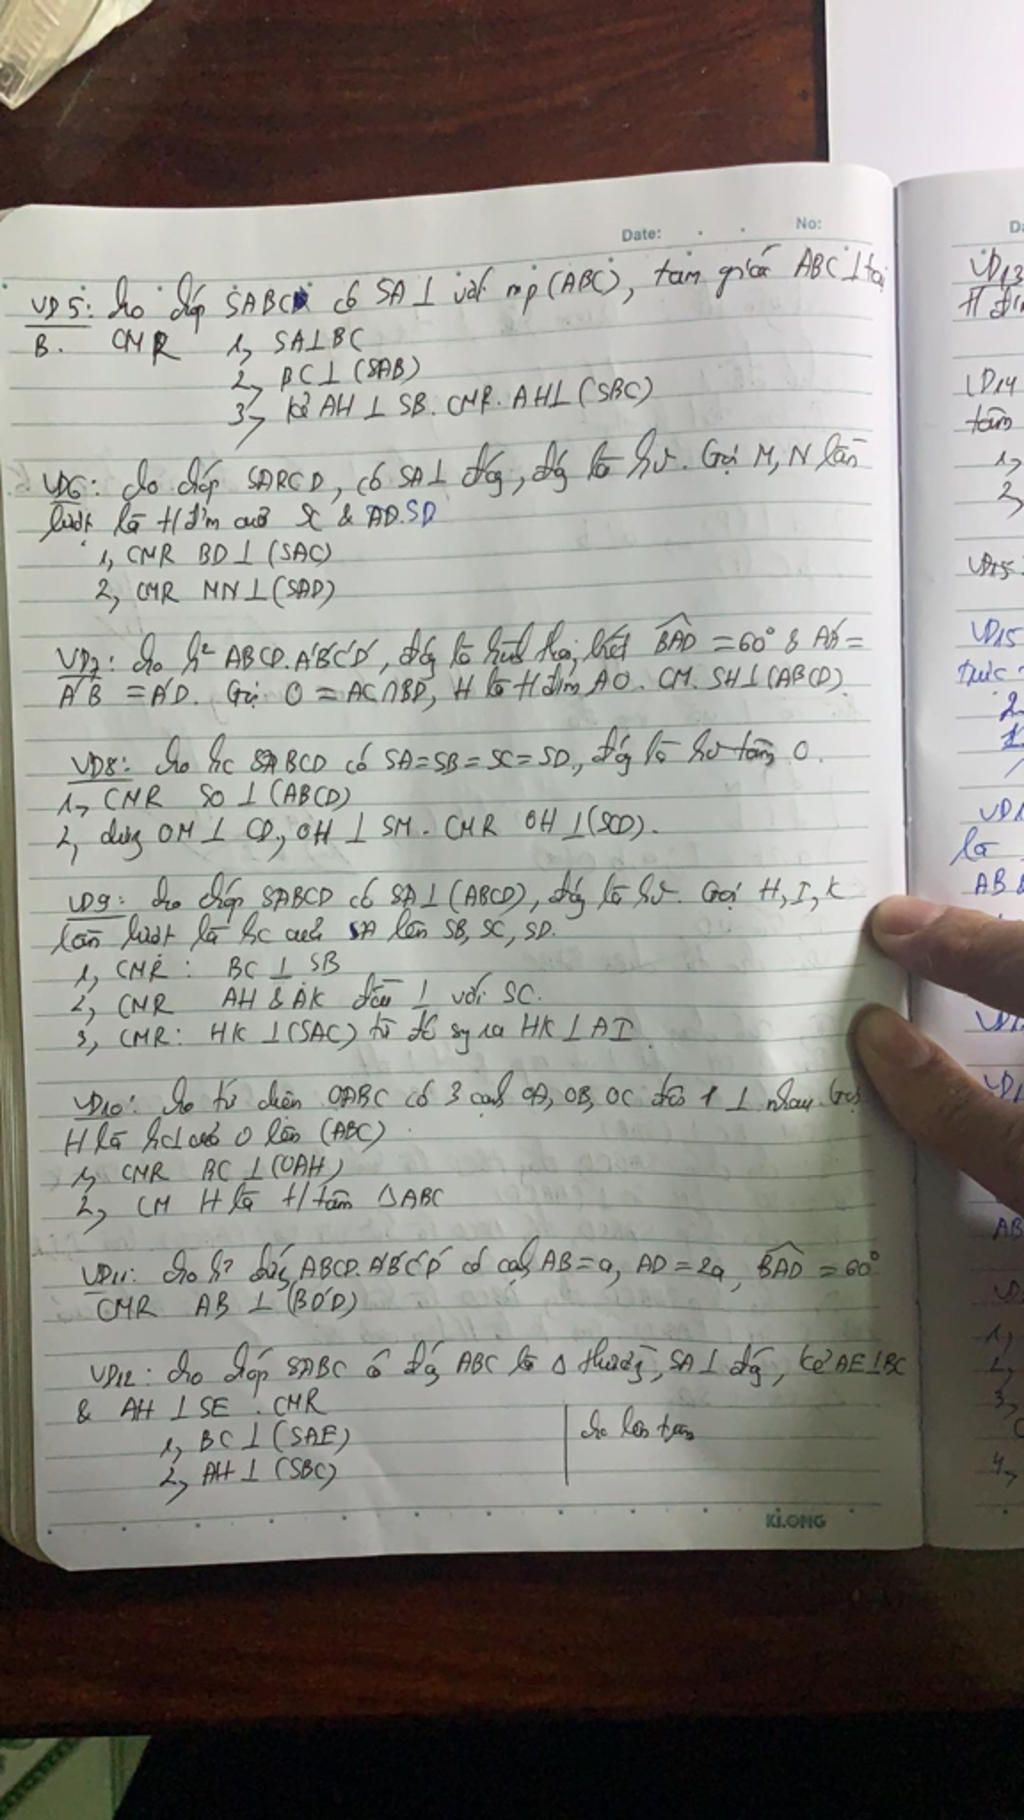 Date: No:
VD5: Cho chóp SABC có SA ⊥ với mp (ABC), tam giác ABC ⊥ tại
B. CMR 1, SA⊥BC
2, BC⊥(SAB)
3, Kẻ AH ⊥ SB. CMR. AH⊥(SBC)
VD6: Cho chóp SABCD, có SA⊥ đáy, đáy là hv. Gọi M, N lần
lượt là t/đ'm của SC & SD
1, CMR BD⊥(SAC)
2, CMR MN⊥(SAD)
VD7: Cho h² ABCD.A'B'C'D', đáy là hình thoi, biết BAD = 60° & A'A =
A'B = A'D. Gọi O = AC∩BD, H là t/điểm AO. CM. SH⊥(ABCD)
VD8: Cho hc SABCD có SA=SB=SC=SD, đáy là hv tâm O.
1, CMR SO ⊥(ABCD)
2, dựng OM⊥ CD, OH ⊥ SM. CMR OH⊥(SCD).
VD9: Cho chóp SABCD có SA⊥(ABCD), đáy là hv. Gọi H, I, K
lần lượt là hc của A lên SB, SC, SD.
1, CMR: BC ⊥ SB
2, CMR AH & AK đều ⊥ với SC.
3, CMR: HK ⊥(SAC) từ đó suy ra HK⊥AI.
VD10: Cho tứ diện OABC có 3 cạnh OA, OB, OC đôi 1 ⊥ nhau. Gọi
H là hc⊥ của O lên (ABC).
1, CMR BC ⊥(OAH)
2, CM H là t/tâm ΔABC
VD11: Cho h² đứng ABCD.A'B'C'D' có cạnh AB=a, AD=2a, BAD = 60°
CMR AB ⊥ (BD'D)
VD12: Cho chóp SABC có đáy ABC là Δ thường, SA⊥ đáy, kẻ AE⊥BC
& AH ⊥SE. CMR
1, BC⊥(SAE)
2, AH⊥(SBC)
KLONG
VD13
VD14
tâm
1,
2,
VD15
2
là
AB &
AB
1,
3,
4,